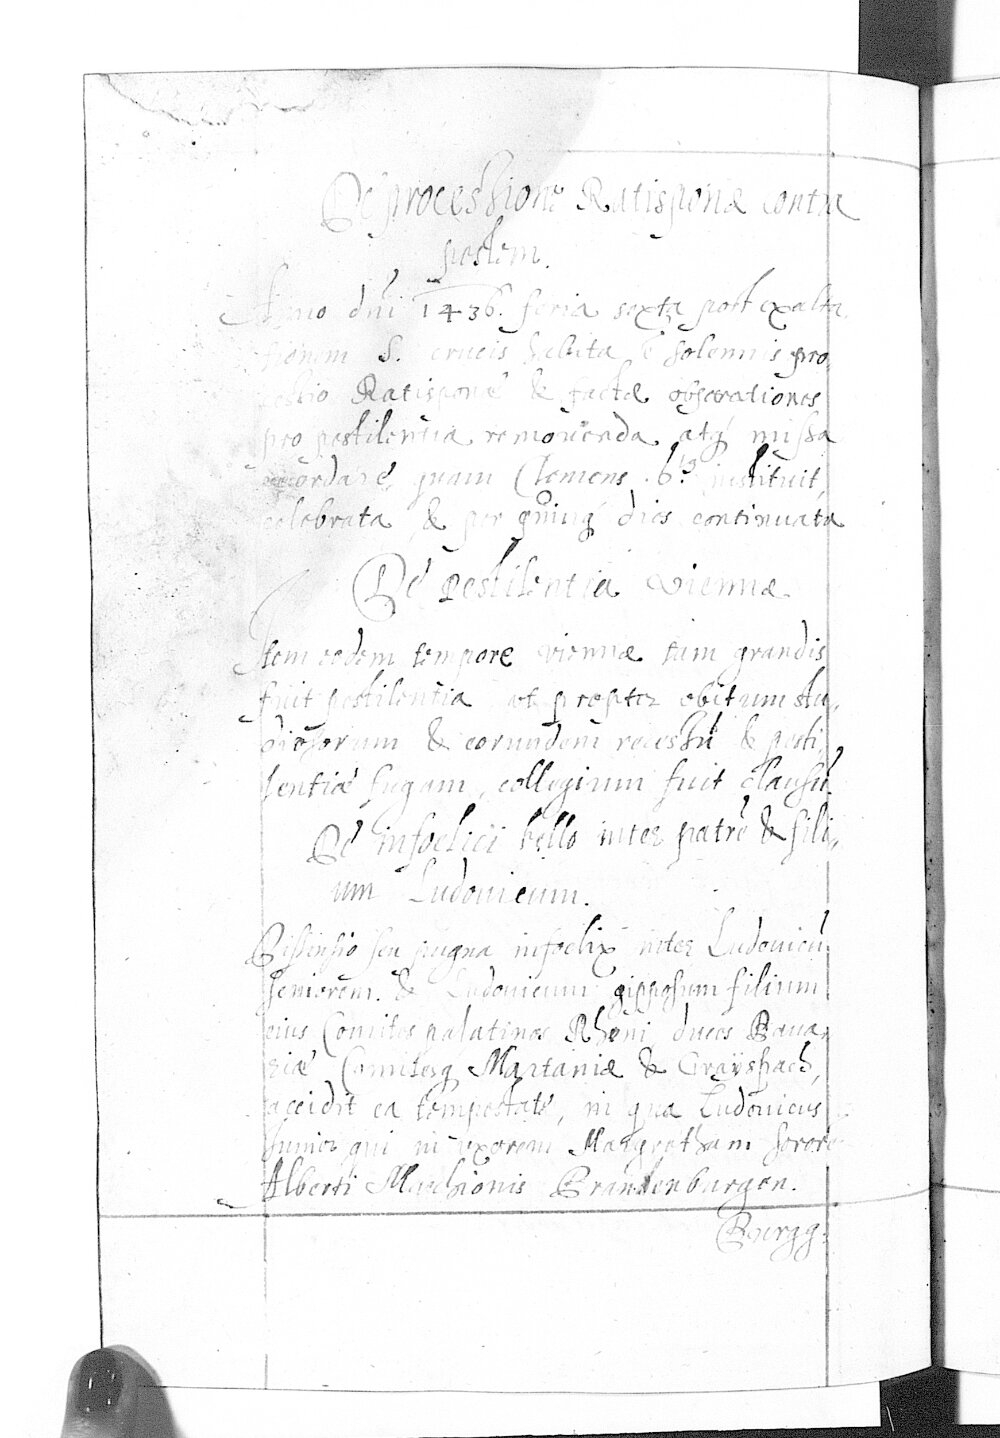 De processione Ratisponæ contra
pestem.
Anno dni 1436. feria sexta post exalta,
tionem S. crucis habita ē solennis pro,
cessio Ratisponæ & factæ obsecrationes
pro pestilentia removenda atq; missa
recordare, quam Clemens .6.us instituit,
celebrata & per quinq; dies continuata
De Pestilentia Viennæ
Item eodem tempore viennæ tam grandis
fuit pestilentia ut propter obitum stu,
diosorum & eorundem recessū & pesti,
lentiæ fugam, collegium fuit clausū.
De infoelici bello inter patrē & fili,,
um Ludovicum.
Dissensio seu pugna infoelix inter Ludovicū
seniorem. & Ludovicum gipposum filium
eius Comites palatinos Rheni duces Bava,
riæ Comitesq; Martaniæ & Grayspach,
accidit ea tempestate, in qua Ludovicus
Junior qui in uxorem Margretham sororē
Alberti Marchionis Brandenburgen.
Burgg: